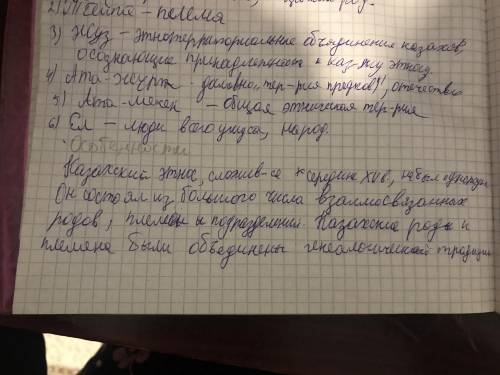 2) Тайпа – племя
3) Жуз – этнотерриториальные объединения казахов
осознающие принадлежность к каз-му этносу.
4) Ата-журт – дословно „тер-рия предков", отечество
5) Ата-мекен – общая этническая тер-рия
6) Ел – люди всего улуса, народ.
Особенности
Казахский этнос, сложив-ся к середине XV в., не был однороден
Он состоял из большого числа взаимосвязанных
родов, племён и подразделений. Казахские роды и
племена были объединены генеалогической традицией